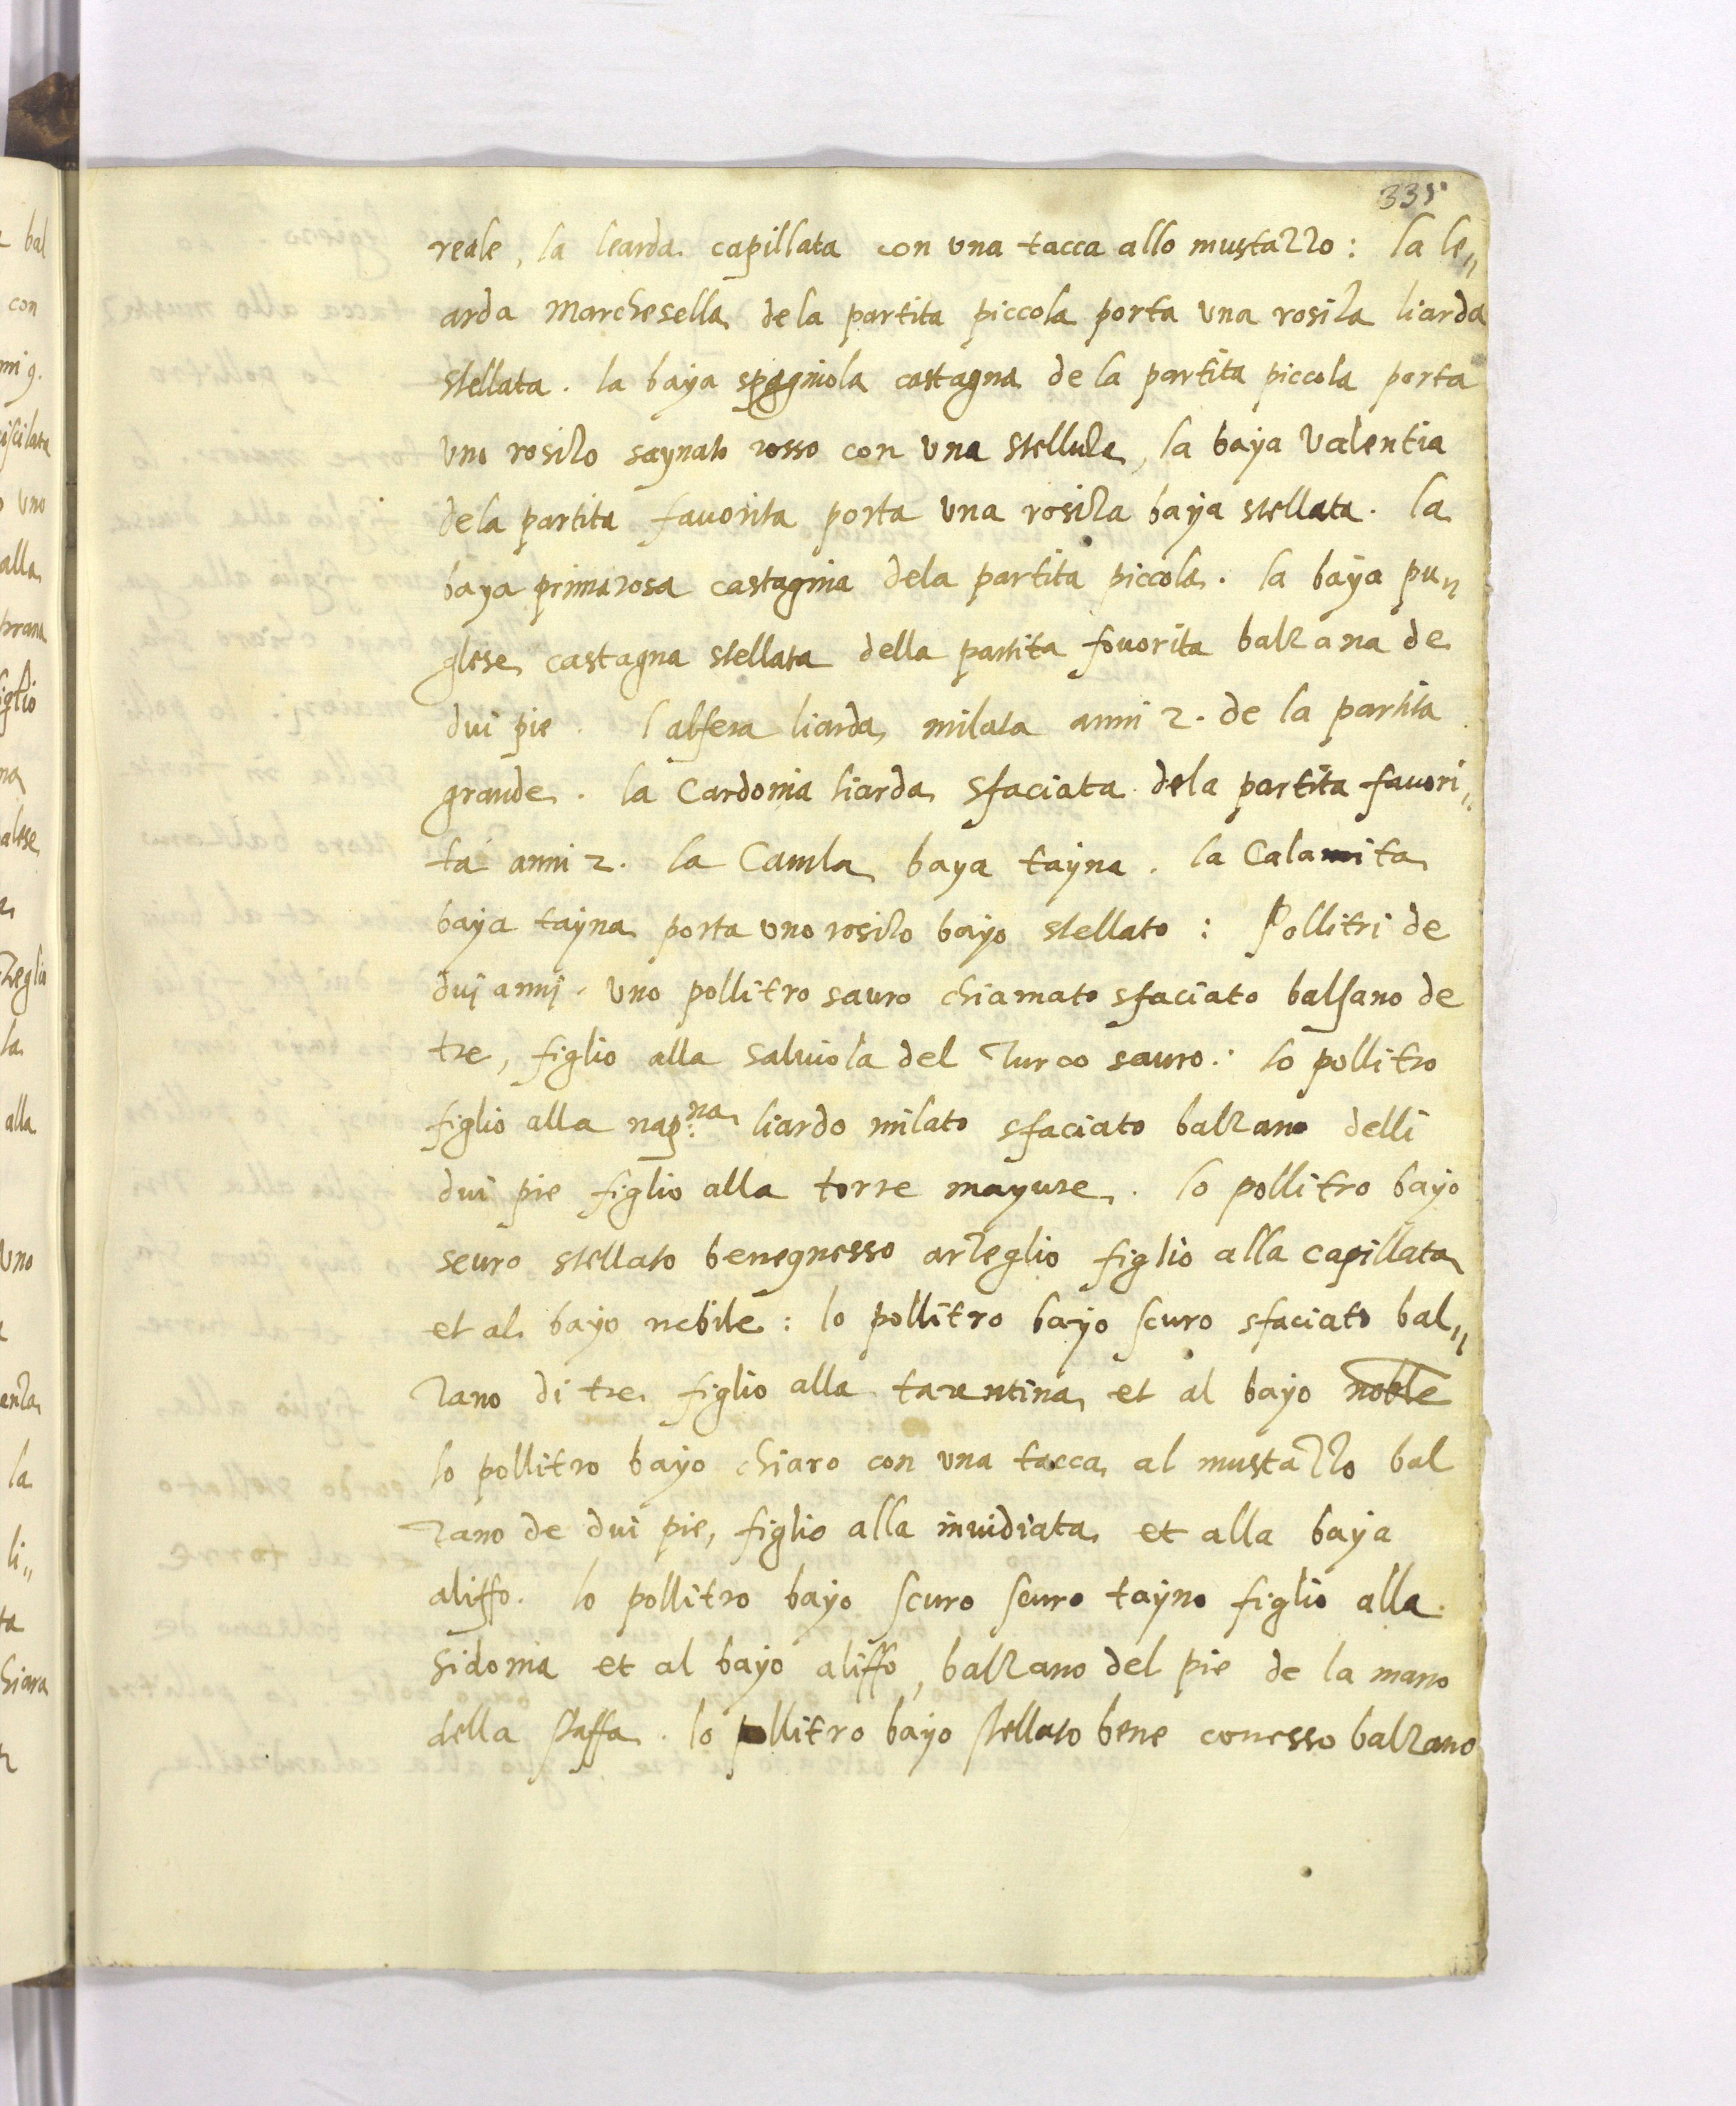 335
reale, la learda capillata con una tacca allo mustazzo: la le„
arda Marchesella dela partita piccola porta una rosiza liarda
stellata. la baya spagniola castagna de la partita piccola porta
uno rosizo saynato rosso con una stelluza, la baya Valentia
dela partita fauorita porta una rosiza baya stellata. la
baya primarosa castagnia dela partita piccola. la baya pu„
gliese castagna stellata della partita fouorita balzana de
dui pie. l alfera liarda milata anni 2. de la partita
grande. la Cardonia liarda sfaciata dela partita fauori„
ta anni 2. la baya tayna. la Calamita
baya tayna porta uno rosizo bayo stellato: Pollitri de
duj annj. uno pollitro sauro chiamato sfaciato balsano de
tre, figlio alla saluiola del Turco sauro: lo pollitro
figlio alla liardo milato sfaciato balzano delli
dui pie figlio alla torre mayure. lo pollitro bayo
scuro stellato benegnesso arzeglio figlio alla capillata
et al bayo nobile: lo pollitro bayo scuro sfaciato bal„
zano di tre figlio alla tarentina et al bayo noble
lo pollitro bayo chiaro con una tacca al mustazzo bal
zano de dui pie, figlio alla inuidiata et alla baya
aliffo. lo pollitro bayo scuro scuro tayno figlio alla
Sidonia et al bayo aliffo, balzano del pie de la mano
della staffa. lo pollitro bayo stellato bene conesso balzano